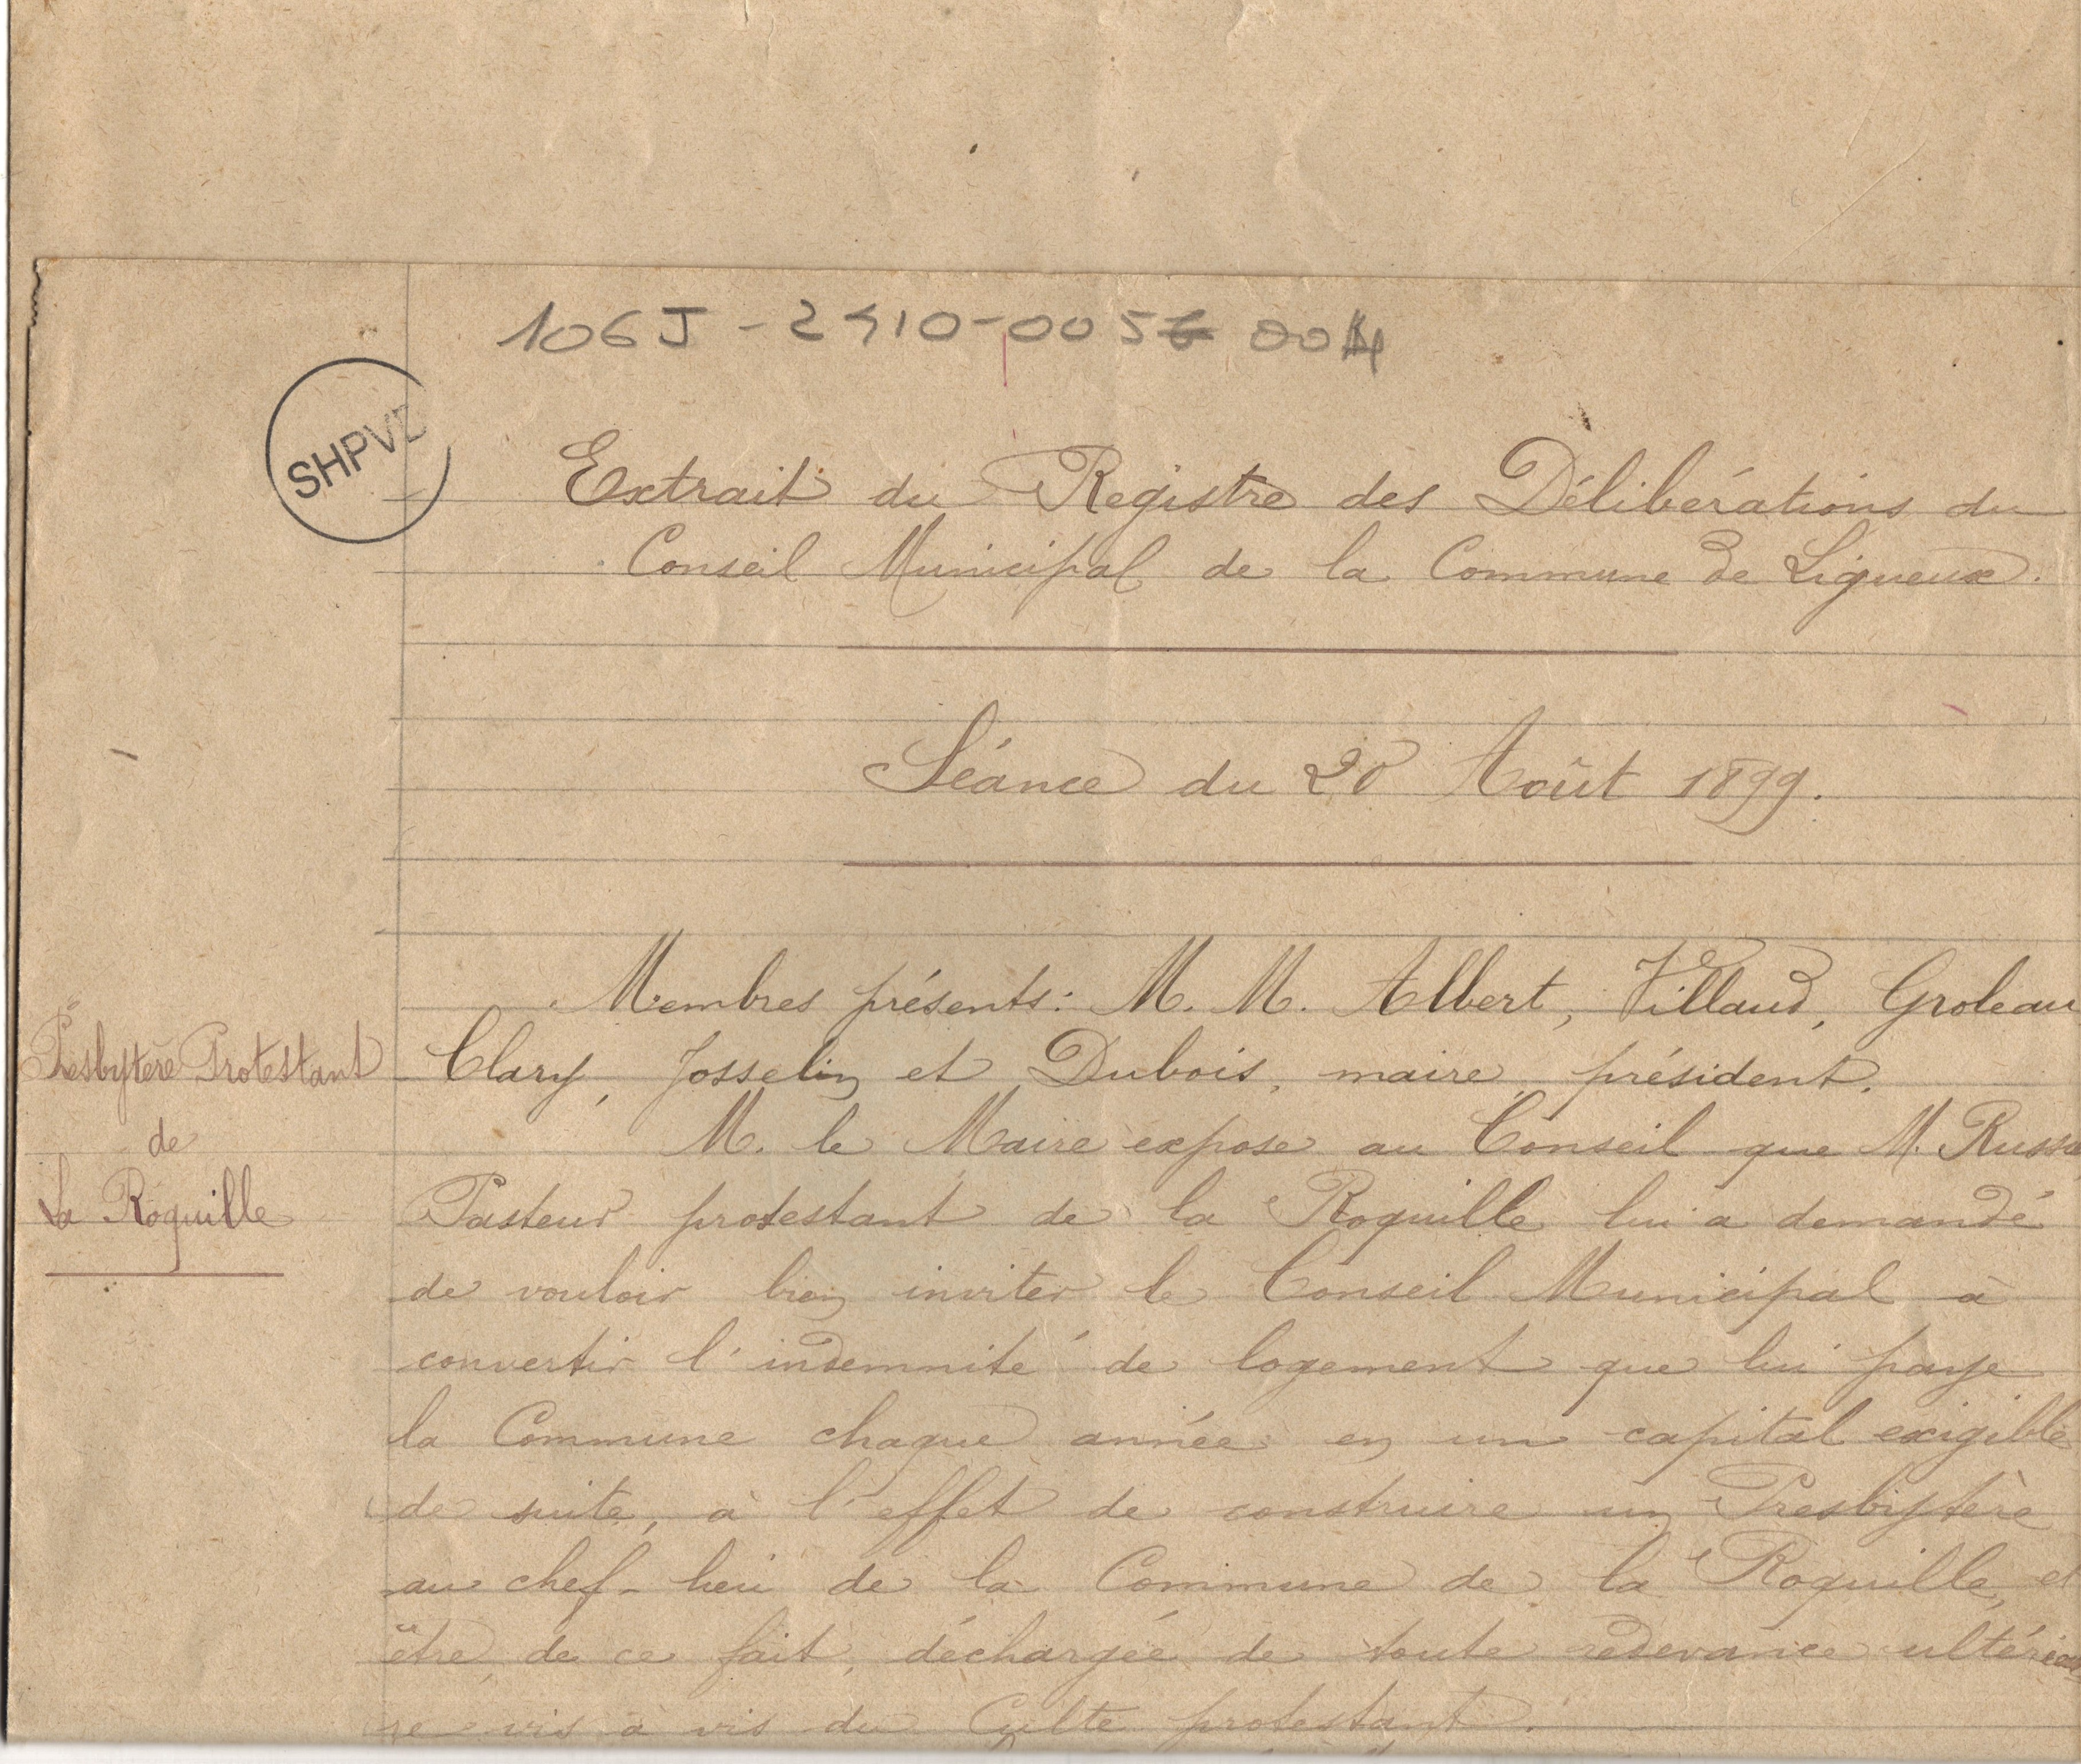 106J - 2410-005 004
SHPVD
Extrait du Registre des Délibérations du
Conseil Municipal de la Commune de Ligueux.
Séance du 20 Août 1899.
Membres présents: M. M. Albert, Villaud, Groleau
Clary, Josselin et Dubois, maire président.
Presbytère Protestant
de
La Roquille
M. le Maire expose au Conseil que M.
Pasteur protestant de la Roquille lui a demandé
de vouloir bien inviter le Conseil Municipal à
convertir l'indemnité de logement que lui paye
la Commune chaque année en un capital exigible
de suite, à l'effet de construire un Presbytère
au chef-lieu de la Commune de la Roquille, et
être, de ce fait, déchargée de toute redevance ultérieu
re vis à vis du Culte protestant.